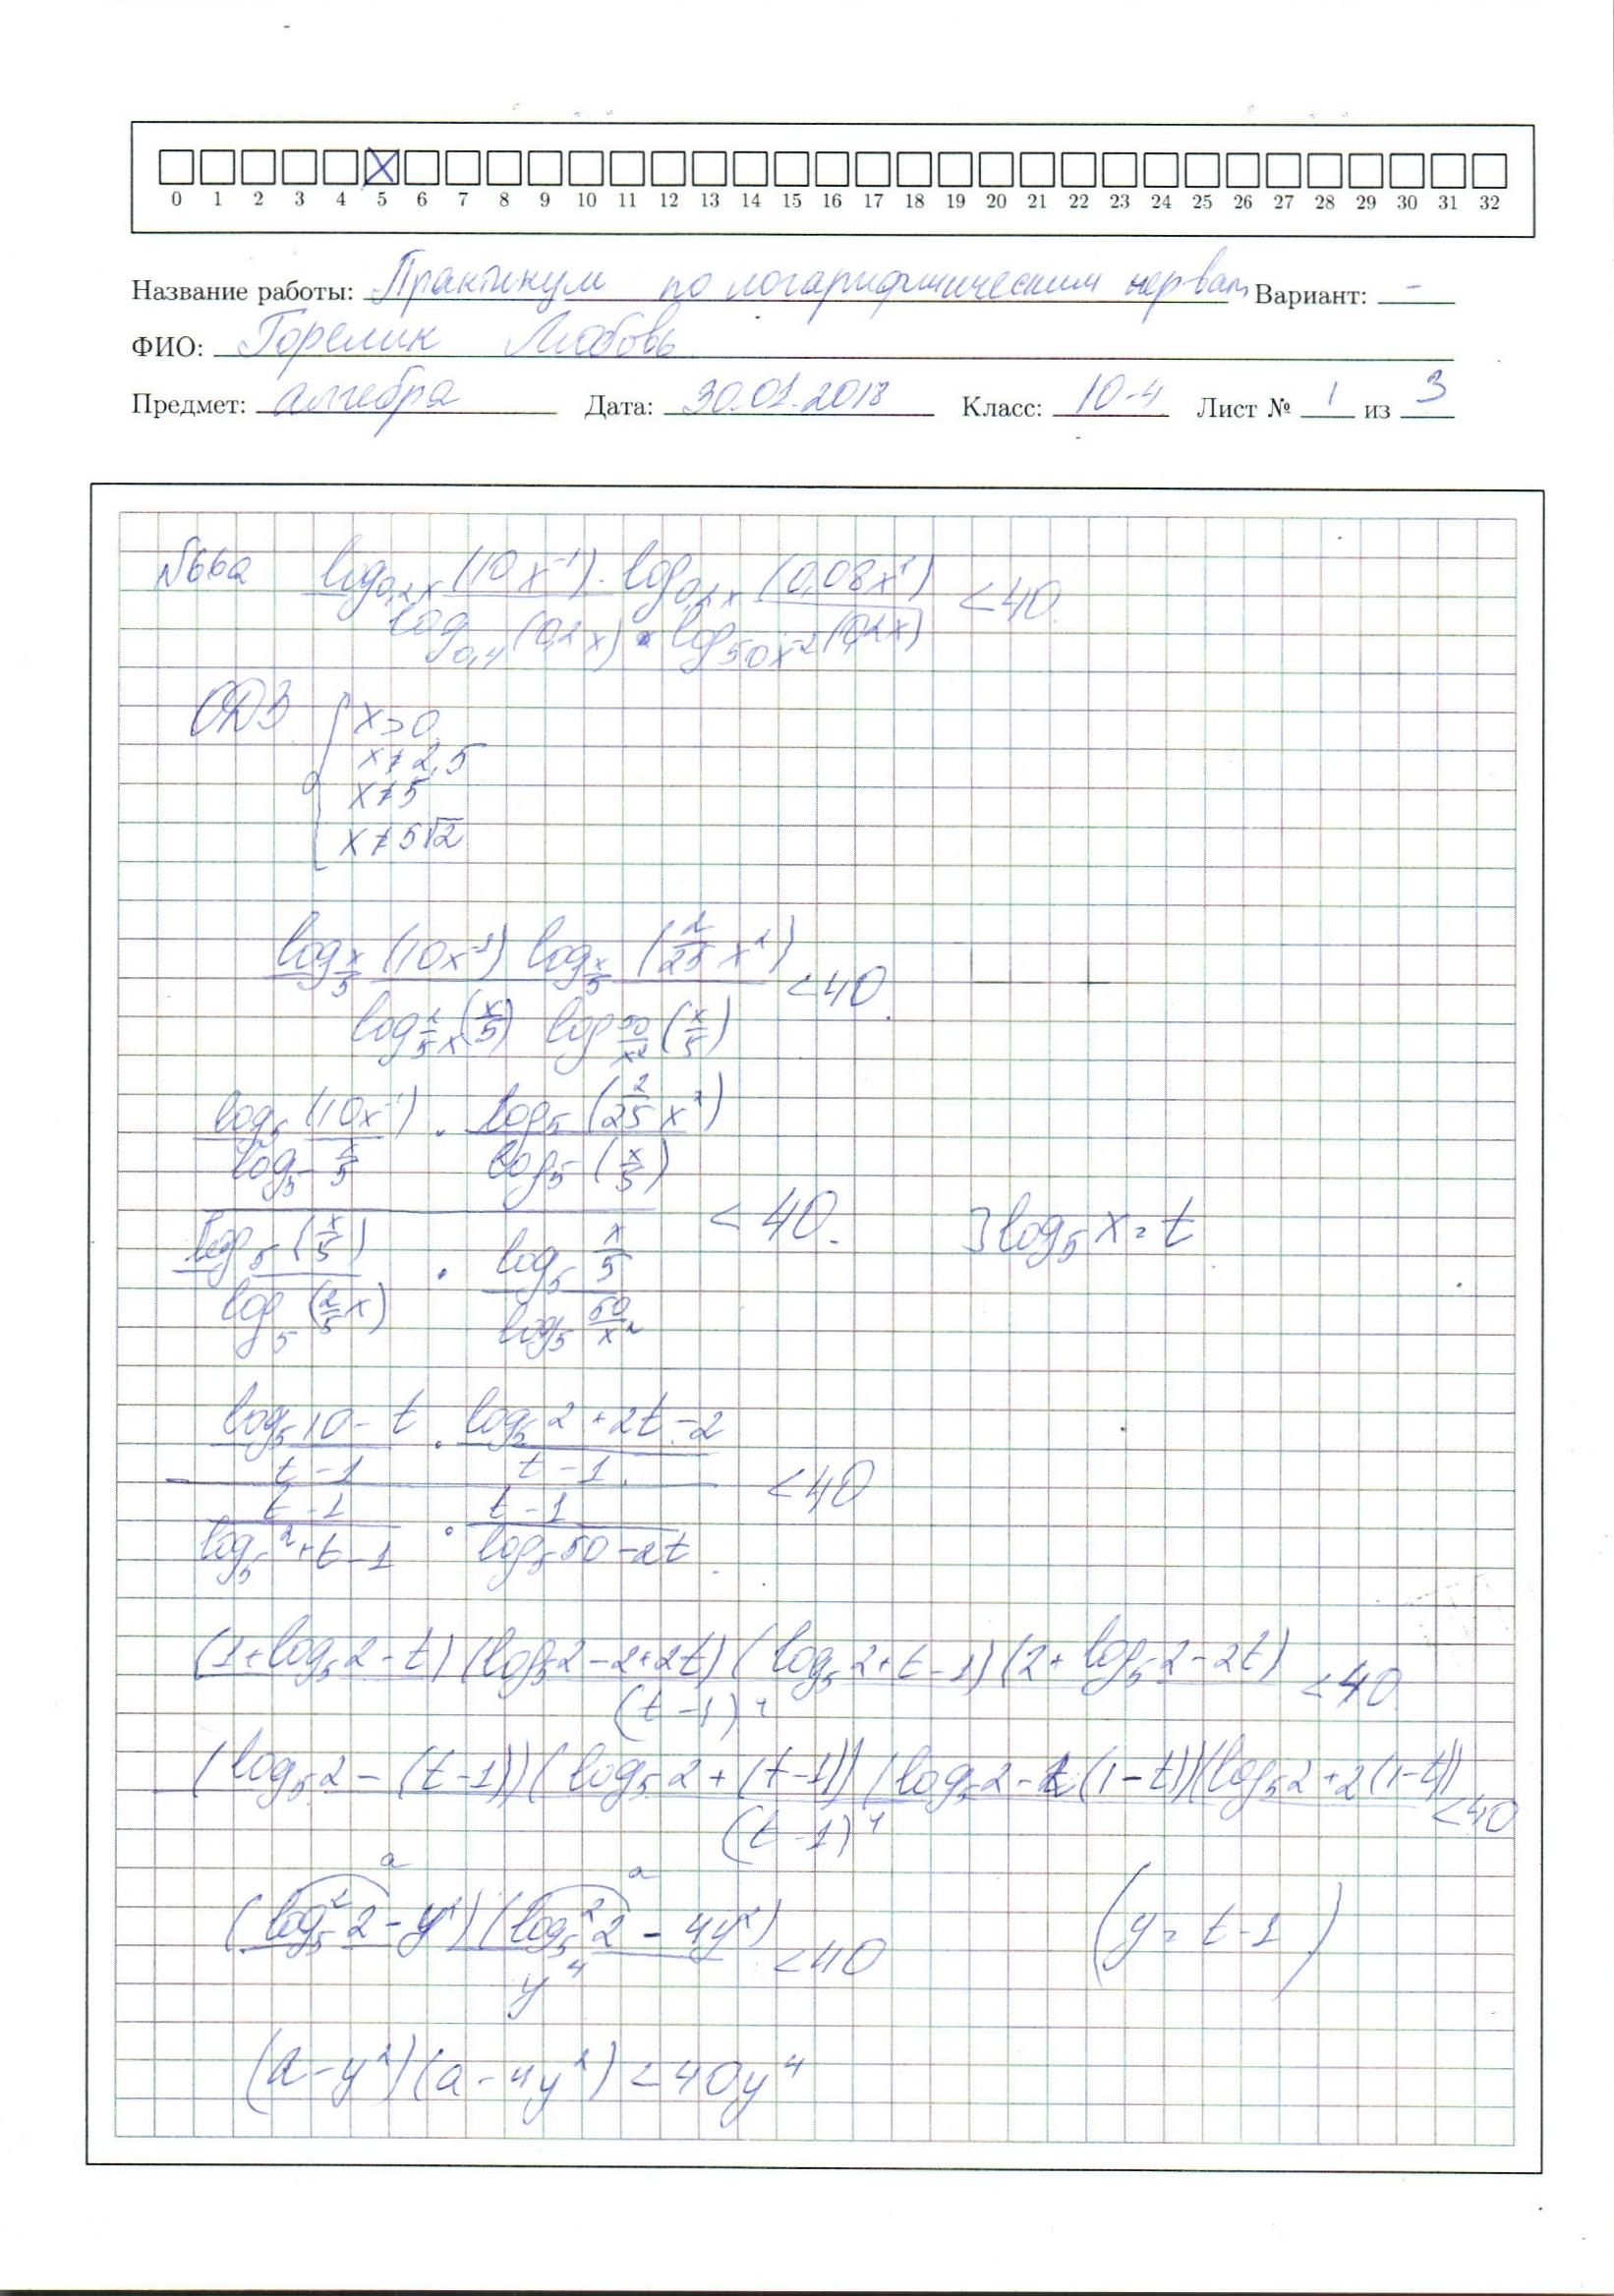 0 1 2 3 4 5 6 7 8 9 10 11 12 13 14 15 16 17 18 19 20 21 22 23 24 25 26 27 28 29 30 31 32
Название работы: Практикум по логарифмическим нервам Вариант: -
ФИО: Горелик Любовь
Предмет: алгебра Дата: 30.01.2018 Класс: 10-4 Лист № 1 из 3
№66a log_{0,2x}(10x^{-1}) · log_{0,2x}(0,08x^2) < 40.
log_{0,4x}(0,2x) · log_{50x^{-2}}(0,2x)
ОДЗ { x>0
x≠2,5
x≠5
x≠5√2
log_{x/5}(10x^{-1}) log_{x/5}(2/25 x^2) < 40.
log_{2/5 x}(x/5) log_{50/x^2}(x/5)
log_5(10x^{-1}) · log_5(2/25 x^2)
log_5 x/5 log_5(x/5)
< 40. ∃ log_5 x = t
log_5(x/5) · log_5 x/5
log_5(2/5 x) log_5 50/x^2
log_5 10 - t · log_5 2 + 2t - 2
t-1 t-1
< 40
t-1 · t-1
log_5 2 + t - 1 log_5 50 - 2t
(1+log_5 2 - t)(log_5 2 - 2 + 2t)(log_5 2 + t - 1)(2 + log_5 2 - 2t) < 40
(t-1)^4
(log_5 2 - (t-1))(log_5 2 + (t-1))(log_5 2 - 2(1-t))(log_5 2 + 2(1-t)) < 40
(t-1)^4
a a
(log_5^2 2 - y^2)(log_5^2 2 - 4y^2) < 40 (y = t-1)
y^4
(a - y^2)(a - 4y^2) < 40y^4